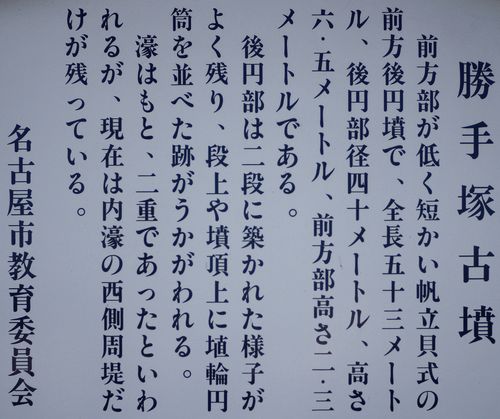 勝手塚古墳
前方部が低く短かい帆立貝式の
前方後円墳で、全長五十三メート
ル、後円部径四十メートル、高さ
六・五メートル、前方部高さ二・三
メートルである。
後円部は二段に築かれた様子が
よく残り、段上や墳頂上に埴輪円
筒を並べた跡がうかがわれる。
濠はもと、二重であったといわ
れるが、現在は内濠の西側周堤だ
けが残っている。
名古屋市教育委員会